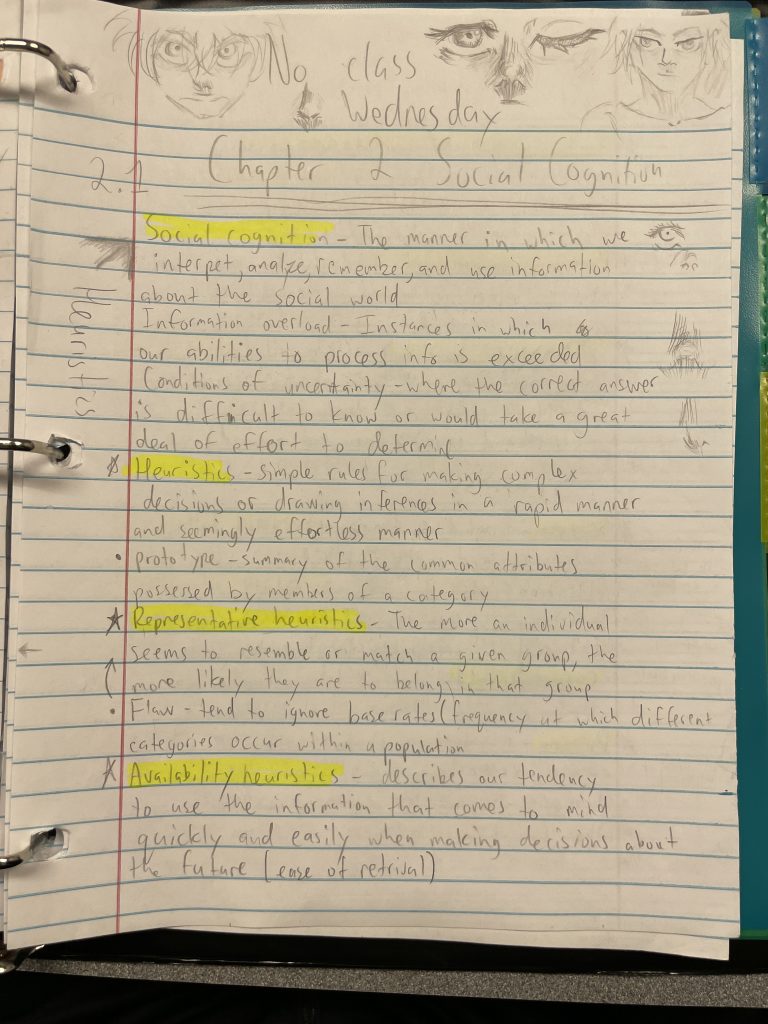 No class
Wednesday
2.1 Chapter 2 Social Cognition
Social cognition - The manner in which we
interpet, analze, remember, and use information
about the social world
Information overload - Instances in which
our abilities to process info is exceeded
Conditions of uncertainty - where the correct answer
is difficult to know or would take a great
deal of effort to determine
Heuristics - simple rules for making complex
decisions or drawing inferences in a rapid manner
and seemingly effortless manner
• prototype - summary of the common attributes
possessed by members of a category
★ Representative heuristics - The more an individual
seems to resemble or match a given group, the
more likely they are to belong in that group
• Flaw - tend to ignore base rates (frequency at which different
categories occur within a population
Availability heuristics - describes our tendency
to use the information that comes to mind
quickly and easily when making decisions about
the future (ease of retrival)
Heuristis